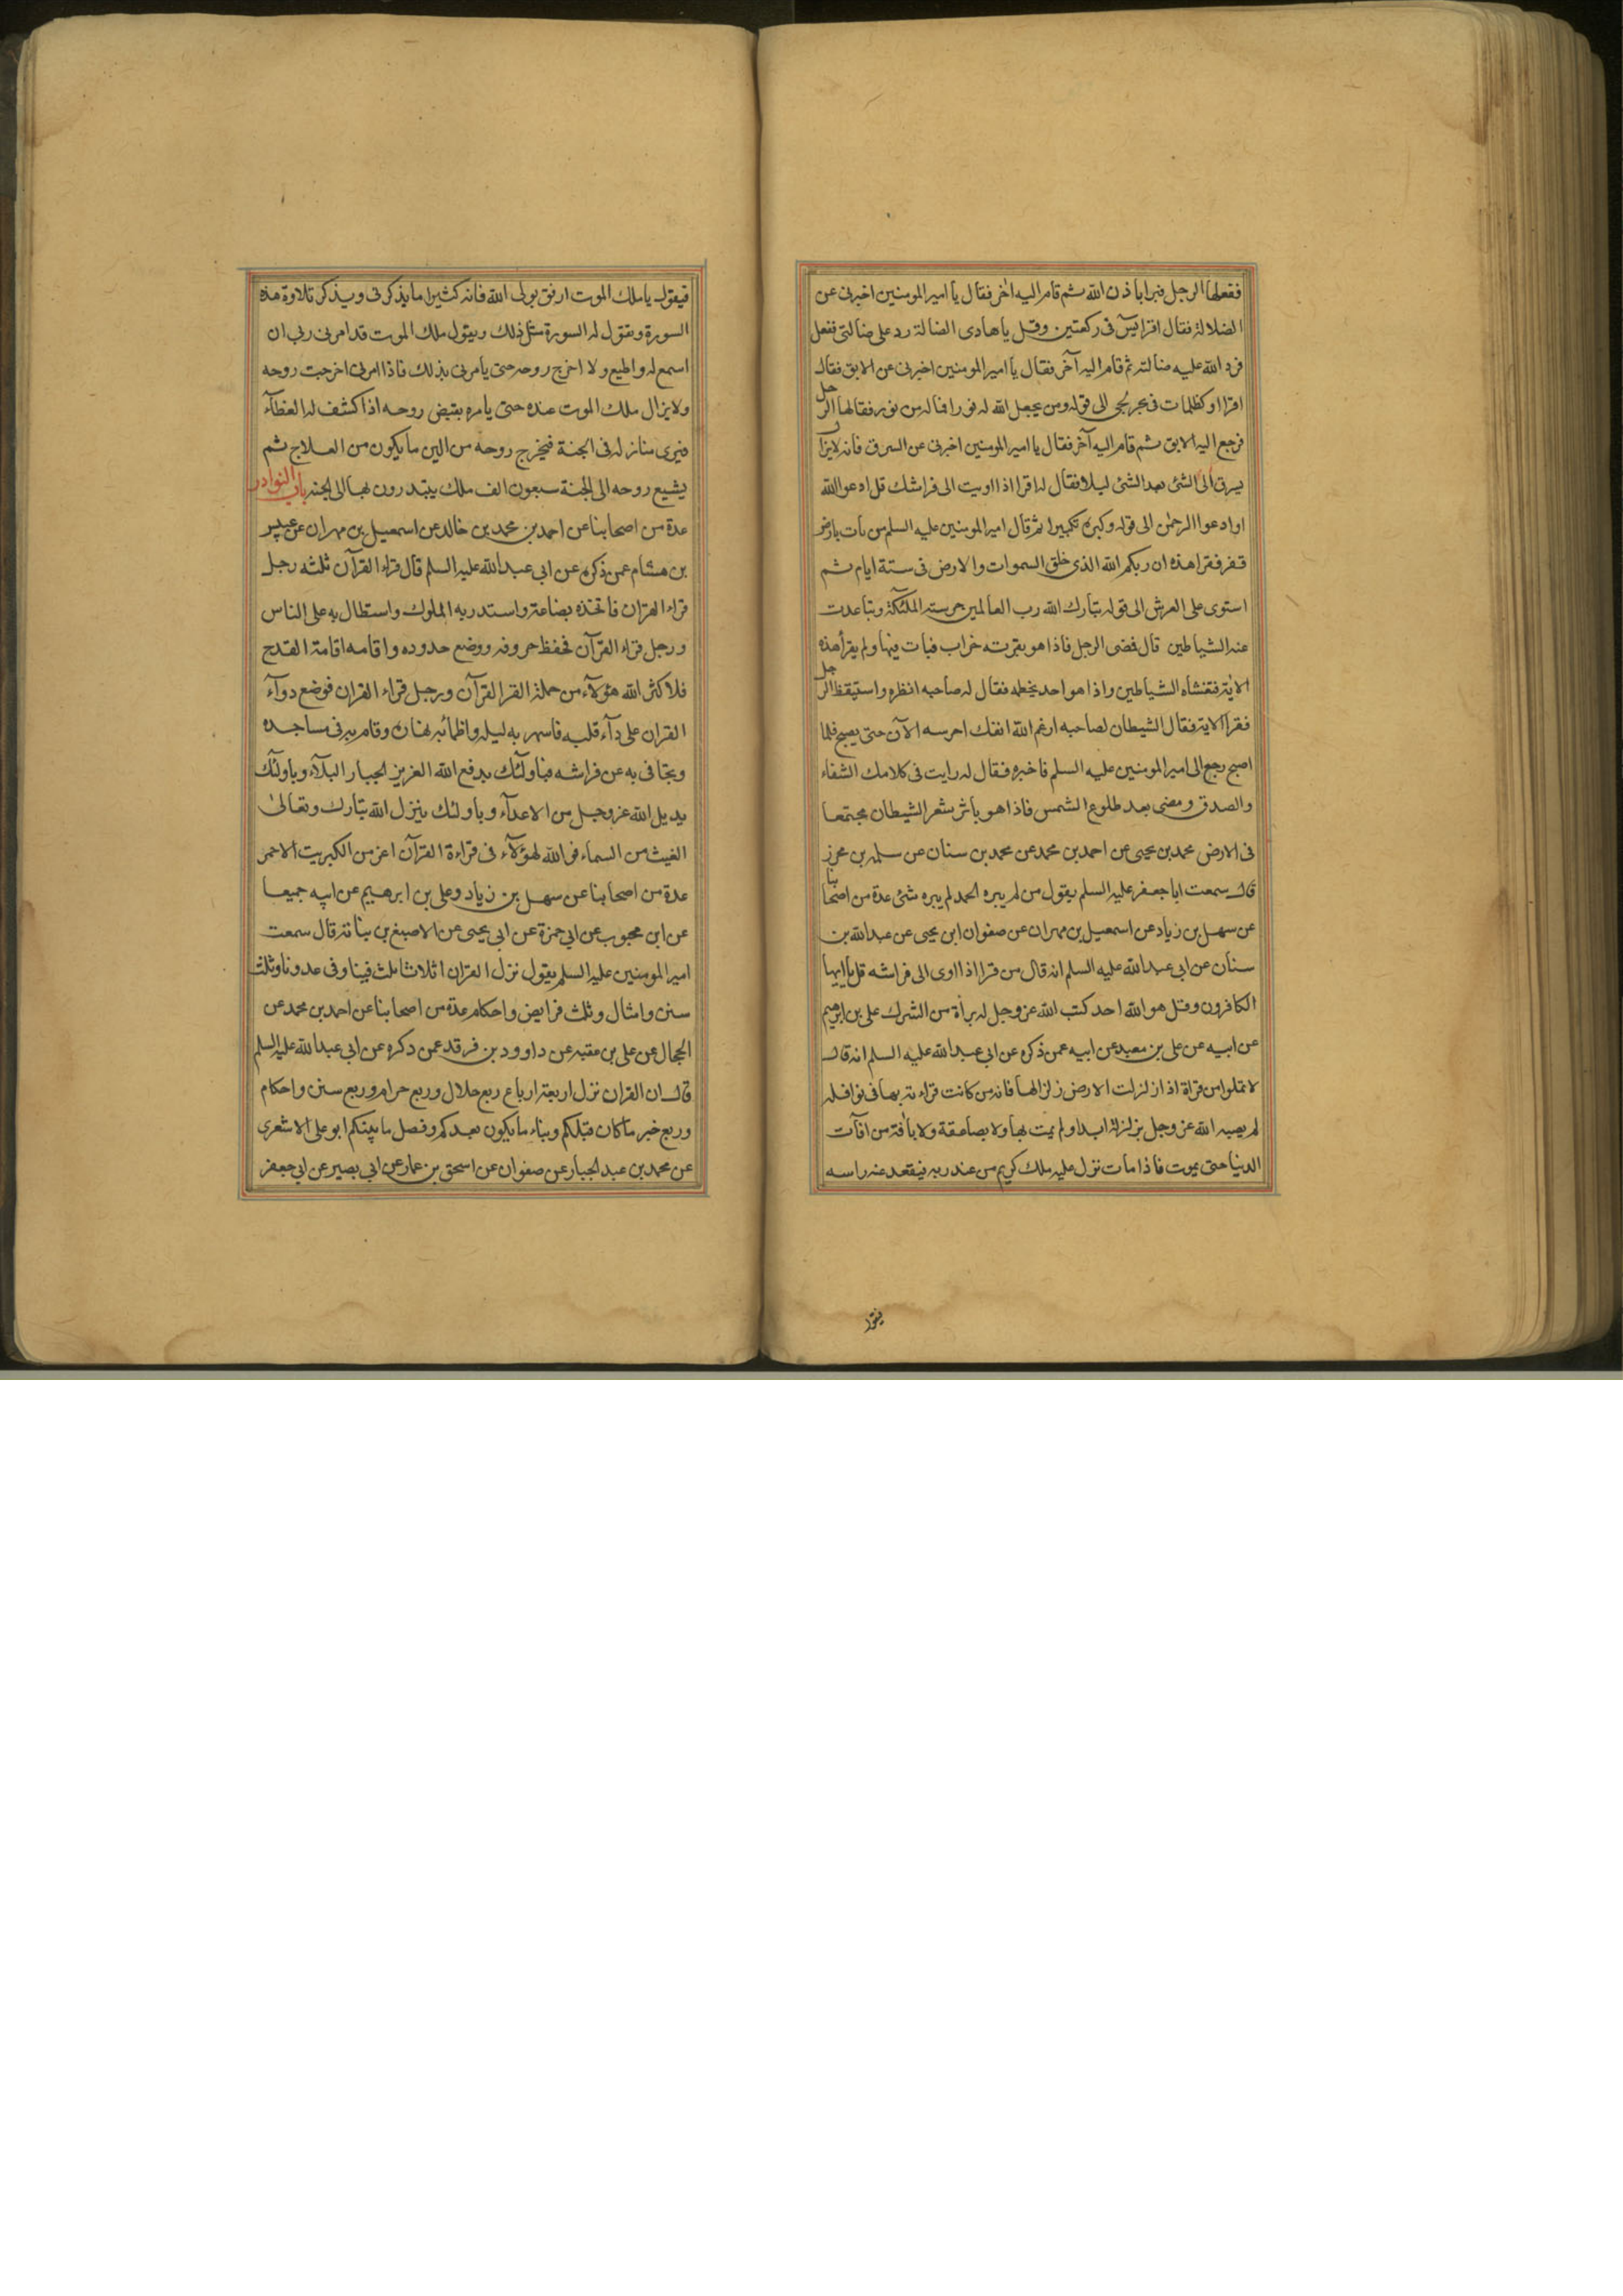 ففعلها الرجل فبرا باذن الله ثم قام اليه اخر فقال يا امير المومنين اخبرنى عن
الضلالة فقال اقرا يس فى ركعتين وقل يا هادى الضالة رد على ضالتى ففعل
فرد الله عليه ضالته ثم قام اليه آخر فقال يا امير المومنين اخبرنى عن الابق فقال
اقرا او كظلمات فى بحر لجى الى قوله ومن لم يجعل الله له نورا فما له من نور فقالها الرجل
فرجع اليه الابق ثم قام اليه آخر فقال يا امير المومنين اخبرنى عن السرق فانه لا يزال
يسرق لى الشئ بعد الشئ ليلا فقال له اقرا اذا اويت الى فراشك قل ادعوا الله
او ادعوا الرحمن الى قوله وكبره تكبيرا ثم قال امير المومنين عليه السلم من بات بارض
قفر فقرا هذه ان ربكم الله الذى خلق السموات والارض فى ستة ايام ثم
استوى على العرش الى قوله تبارك الله رب العالمين حرسته الملئكة وتباعدت
عنه الشياطين قال فمضى الرجل فاذا هو بقرية خراب فبات فيها ولم يقرأ هذه
الاية فتغشاه الشياطين واذا هو احد بخطمه فقال له صاحبه انظره واستيقظ الرجل
فقرا الاية فقال الشيطان لصاحبه ارغم الله انفك احرسه الآن حتى يصبح فلما
اصبح رجع الى امير المومنين عليه السلم فاخبره فقال له رايت فى كلامك الشفاء
والصدق ومضى بعد طلوع الشمس فاذا هو باثر شعر الشيطان مجتمعا
فى الارض محمد بن يحيى عن احمد بن محمد عن محمد بن سنان عن سلمة بن محرز
قال سمعت ابا جعفر عليه السلم يقول من لم يبره الحمد لم يبره شئ عدة من اصحابنا
عن سهل بن زياد عن اسمعيل بن مهران عن صفوان ابن يحيى عن عبد الله بن
سنان عن ابى عبد الله عليه السلم انه قال من قرا اذا اوى الى فراشه قل يا ايها
الكافرون وقل هو الله احد كتب الله عز وجل له برأة من الشرك على بن ابرهيم
عن ابيه عن على بن معبد عن ابيه عمن ذكره عن ابى عبد الله عليه السلم انه قال
لا تملوا من قراة اذا زلزلت الارض زلزالها فانه من كانت قراءته بها فى نوافله
لم يصبه الله عز وجل بزلزلة ابدا ولم يمت بها ولا بصاعقة ولا بافة من افآت
الدنيا حتى يموت فاذا مات نزل عليه ملك كريم من عند ربه فيقعد عند راسه
فيقول
فيقول يا ملك الموت ارفق بولى الله فانه كثيرا ما يذكرنى ويذكر تلاوة هذه
السورة وتقول له السورة مثل ذلك ويقول ملك الموت قد امرنى ربى ان
اسمع له واطيع ولا اخرج روحه حتى يأمرنى بذلك فاذا امرنى اخرجت روحه
ولا يزال ملك الموت عنده حتى يامره بقبض روحه اذا كشف له الغطآء
فيرى منازله فى الجنة فيخرج روحه من الين ما يكون من العلاج ثم
يشيع روحه الى الجنة سبعون الف ملك يبتدرون بها الى الجنه باب النوادر
عدة من اصحابنا عن احمد بن محمد بن خالد عن اسمعيل بن مهران عن عبيس
بن هشام عمن ذكره عن ابى عبد الله عليه السلم قال قراء القرآن ثلثه رجل
قراء القران فاتخذه بضاعة واستدر به الملوك واستطال به على الناس
ورجل قراء القرآن فحفظ حروفه وضيع حدوده واقامه اقامة القدح
فلا كثر الله هؤلآء من حملة القرآن ورجل قراء القران فوضع دوآء
القران على دآء قلبه فاسهر به ليله واظمأ به نهاره وقام به فى مساجده
وتجافى به عن فراشه فباولئك يدفع الله العزيز الجبار البلآء وباولئك
يديل الله عز وجل من الاعدآء وباولئك ينزل الله تبارك وتعالى
الغيث من السماء فو الله لهؤلآء فى قراءة القرآن اعز من الكبريت الاحمر
عدة من اصحابنا عن سهل بن زياد وعلى بن ابرهيم عن ابيه جميعا
عن ابن محبوب عن ابى حمزة عن ابى يحيى عن الاصبغ بن نباتة قال سمعت
امير المومنين عليه السلم يقول نزل القران اثلاثا ثلث فينا وفى عدونا وثلث
سنن وامثال وثلث فرايض واحكام عدة من اصحابنا عن احمد بن محمد عن
الحجال عن على بن عقبه عن داوود بن فرقد عمن ذكره عن ابى عبد الله عليه السلم
قال ان القران نزل اربعة ارباع ربع حلال وربع حرام وربع سنن واحكام
وربع خبر ما كان قبلكم ونباء ما يكون بعدكم وفصل ما بينكم ابو على الاشعرى
عن محمد بن عبد الجبار عن صفوان عن اسحق بن عمار عن ابى بصير عن ابى جعفر